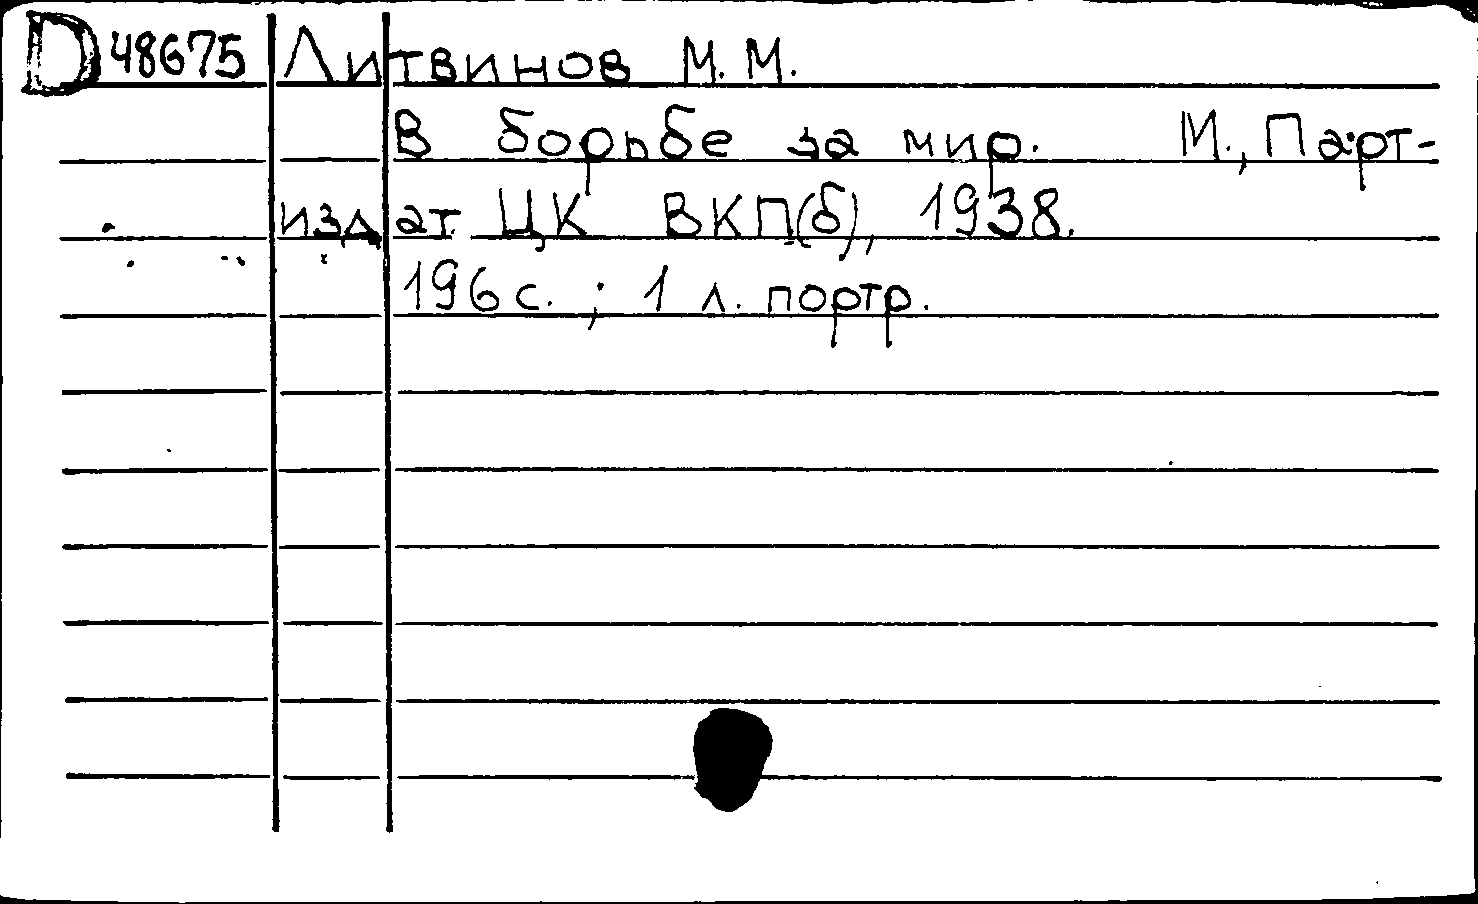 D 48675 Литвинов М.М.
В борьбе за мир. М., Парт-
издат ЦК ВКП(б), 1938.
196 с. ; 1 л. портр.